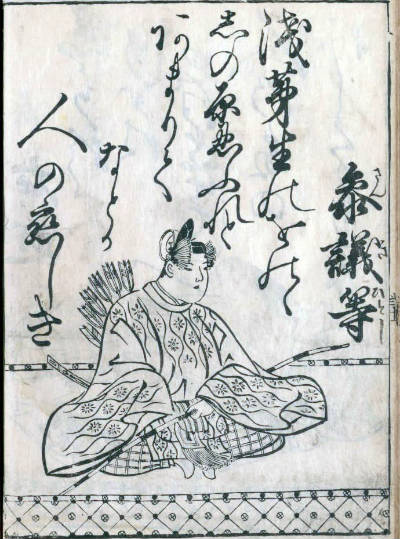 參議等
浅茅生のをのゝ
しの原忍ふれと
あまりて
なとか
人の恋しき